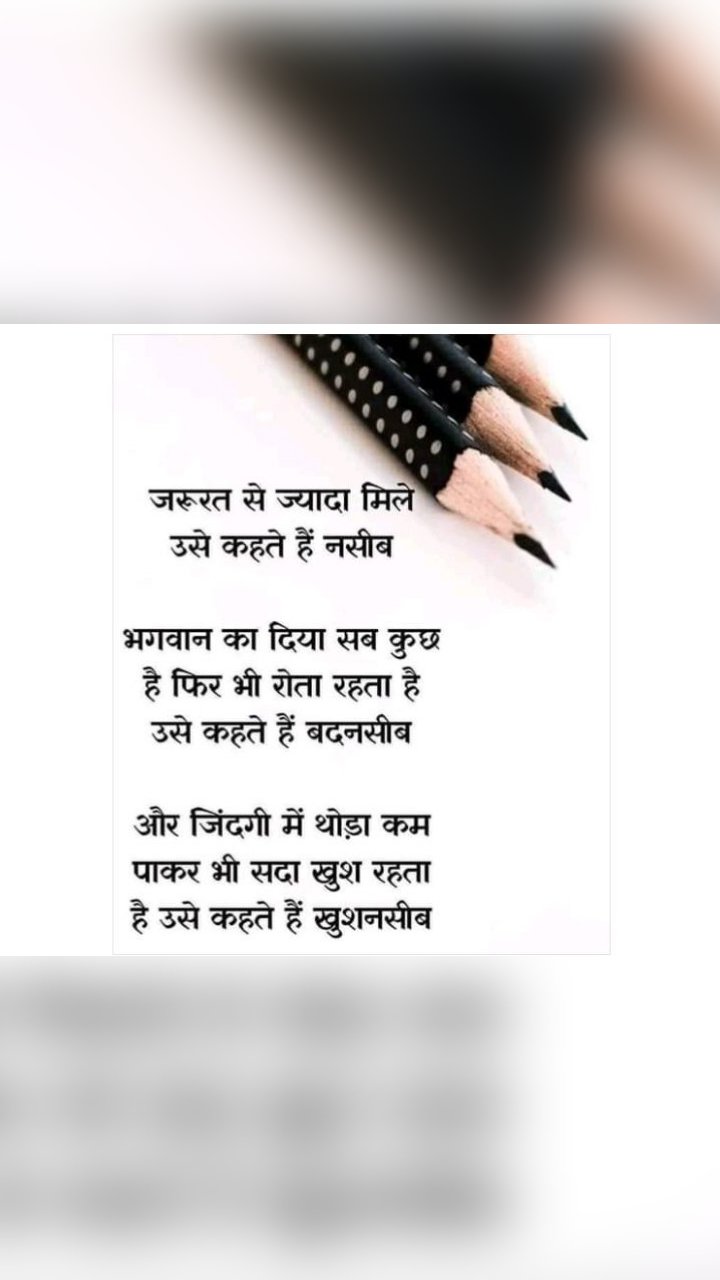 जरूरत से ज्यादा मिले
उसे कहते हैं नसीब
भगवान का दिया सब कुछ
है फिर भी रोता रहता है
उसे कहते हैं बदनसीब
और जिंदगी में थोड़ा कम
पाकर भी सदा खुश रहता
है उसे कहते हैं खुशनसीब